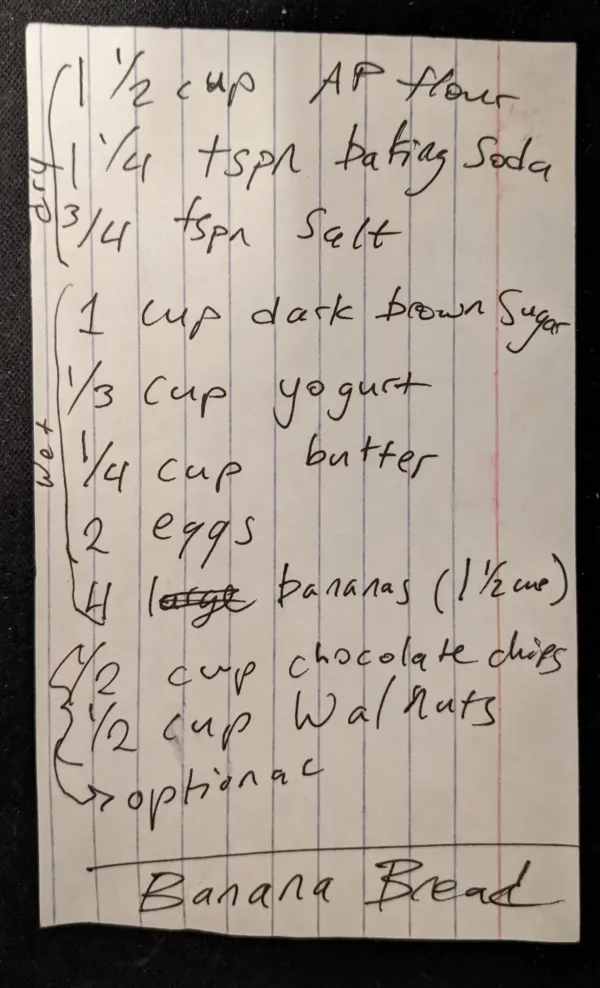 dry
1 1/2 cup AP flour
1 1/4 tspn baking Soda
3/4 tspn Salt
wet
1 cup dark brown Sugar
1/3 cup yogurt
1/4 cup butter
2 eggs
4 large bananas (1 1/2 cup)
1/2 cup chocolate chips
1/2 cup Walnuts
→ optional
Banana Bread